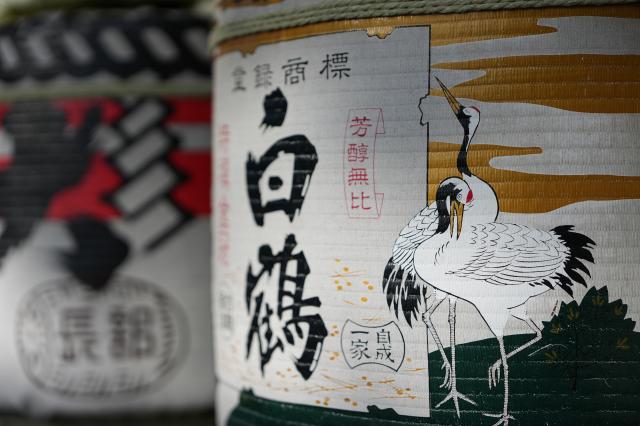 登録商標
白鶴
芳醇無比
自成
一家